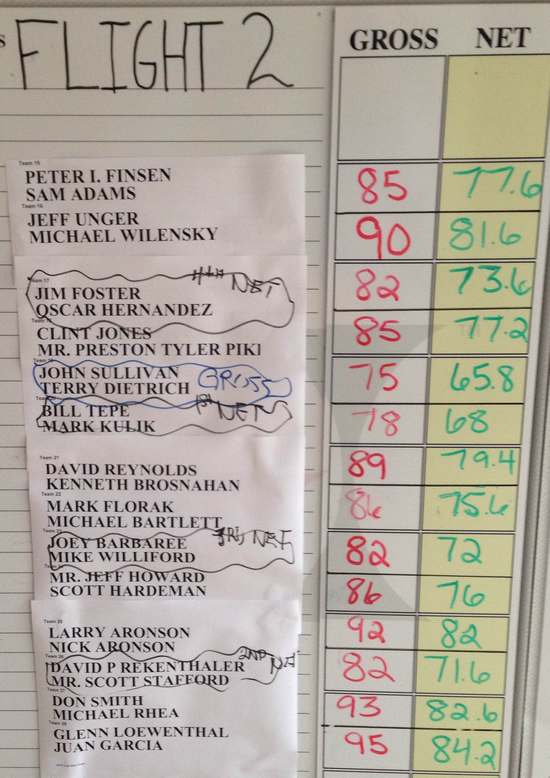 FLIGHT 2
GROSS NET
Team 15
PETER I. FINSEN 85 77.6
SAM ADAMS
Team 16
JEFF UNGER 90 81.6
MICHAEL WILENSKY
Team 17
NET
JIM FOSTER 82 73.6
OSCAR HERNANDEZ
CLINT JONES 85 77.2
MR. PRESTON TYLER PIKE
JOHN SULLIVAN 75 65.8
TERRY DIETRICH GROSS
BILL TEPE 1st NET 78 68
MARK KULIK
Team 21
DAVID REYNOLDS 89 79.4
KENNETH BROSNAHAN
Team 22
MARK FLORAK 86 75.6
MICHAEL BARTLETT
JOEY BARBAREE 3RD NET 82 72
MIKE WILLIFORD
MR. JEFF HOWARD 86 76
SCOTT HARDEMAN
Team 25
LARRY ARONSON 92 82
NICK ARONSON
Team 26
DAVID P REKENTHALER 2ND NET 82 71.6
MR. SCOTT STAFFORD
Team 27
DON SMITH 93 82.6
MICHAEL RHEA
Team 28
GLENN LOEWENTHAL 95 84.2
JUAN GARCIA